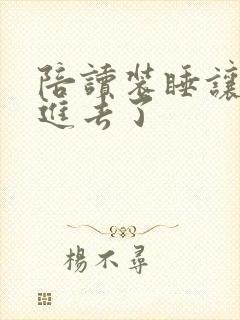 陪讀裝睡讓
進去了
楊不尋